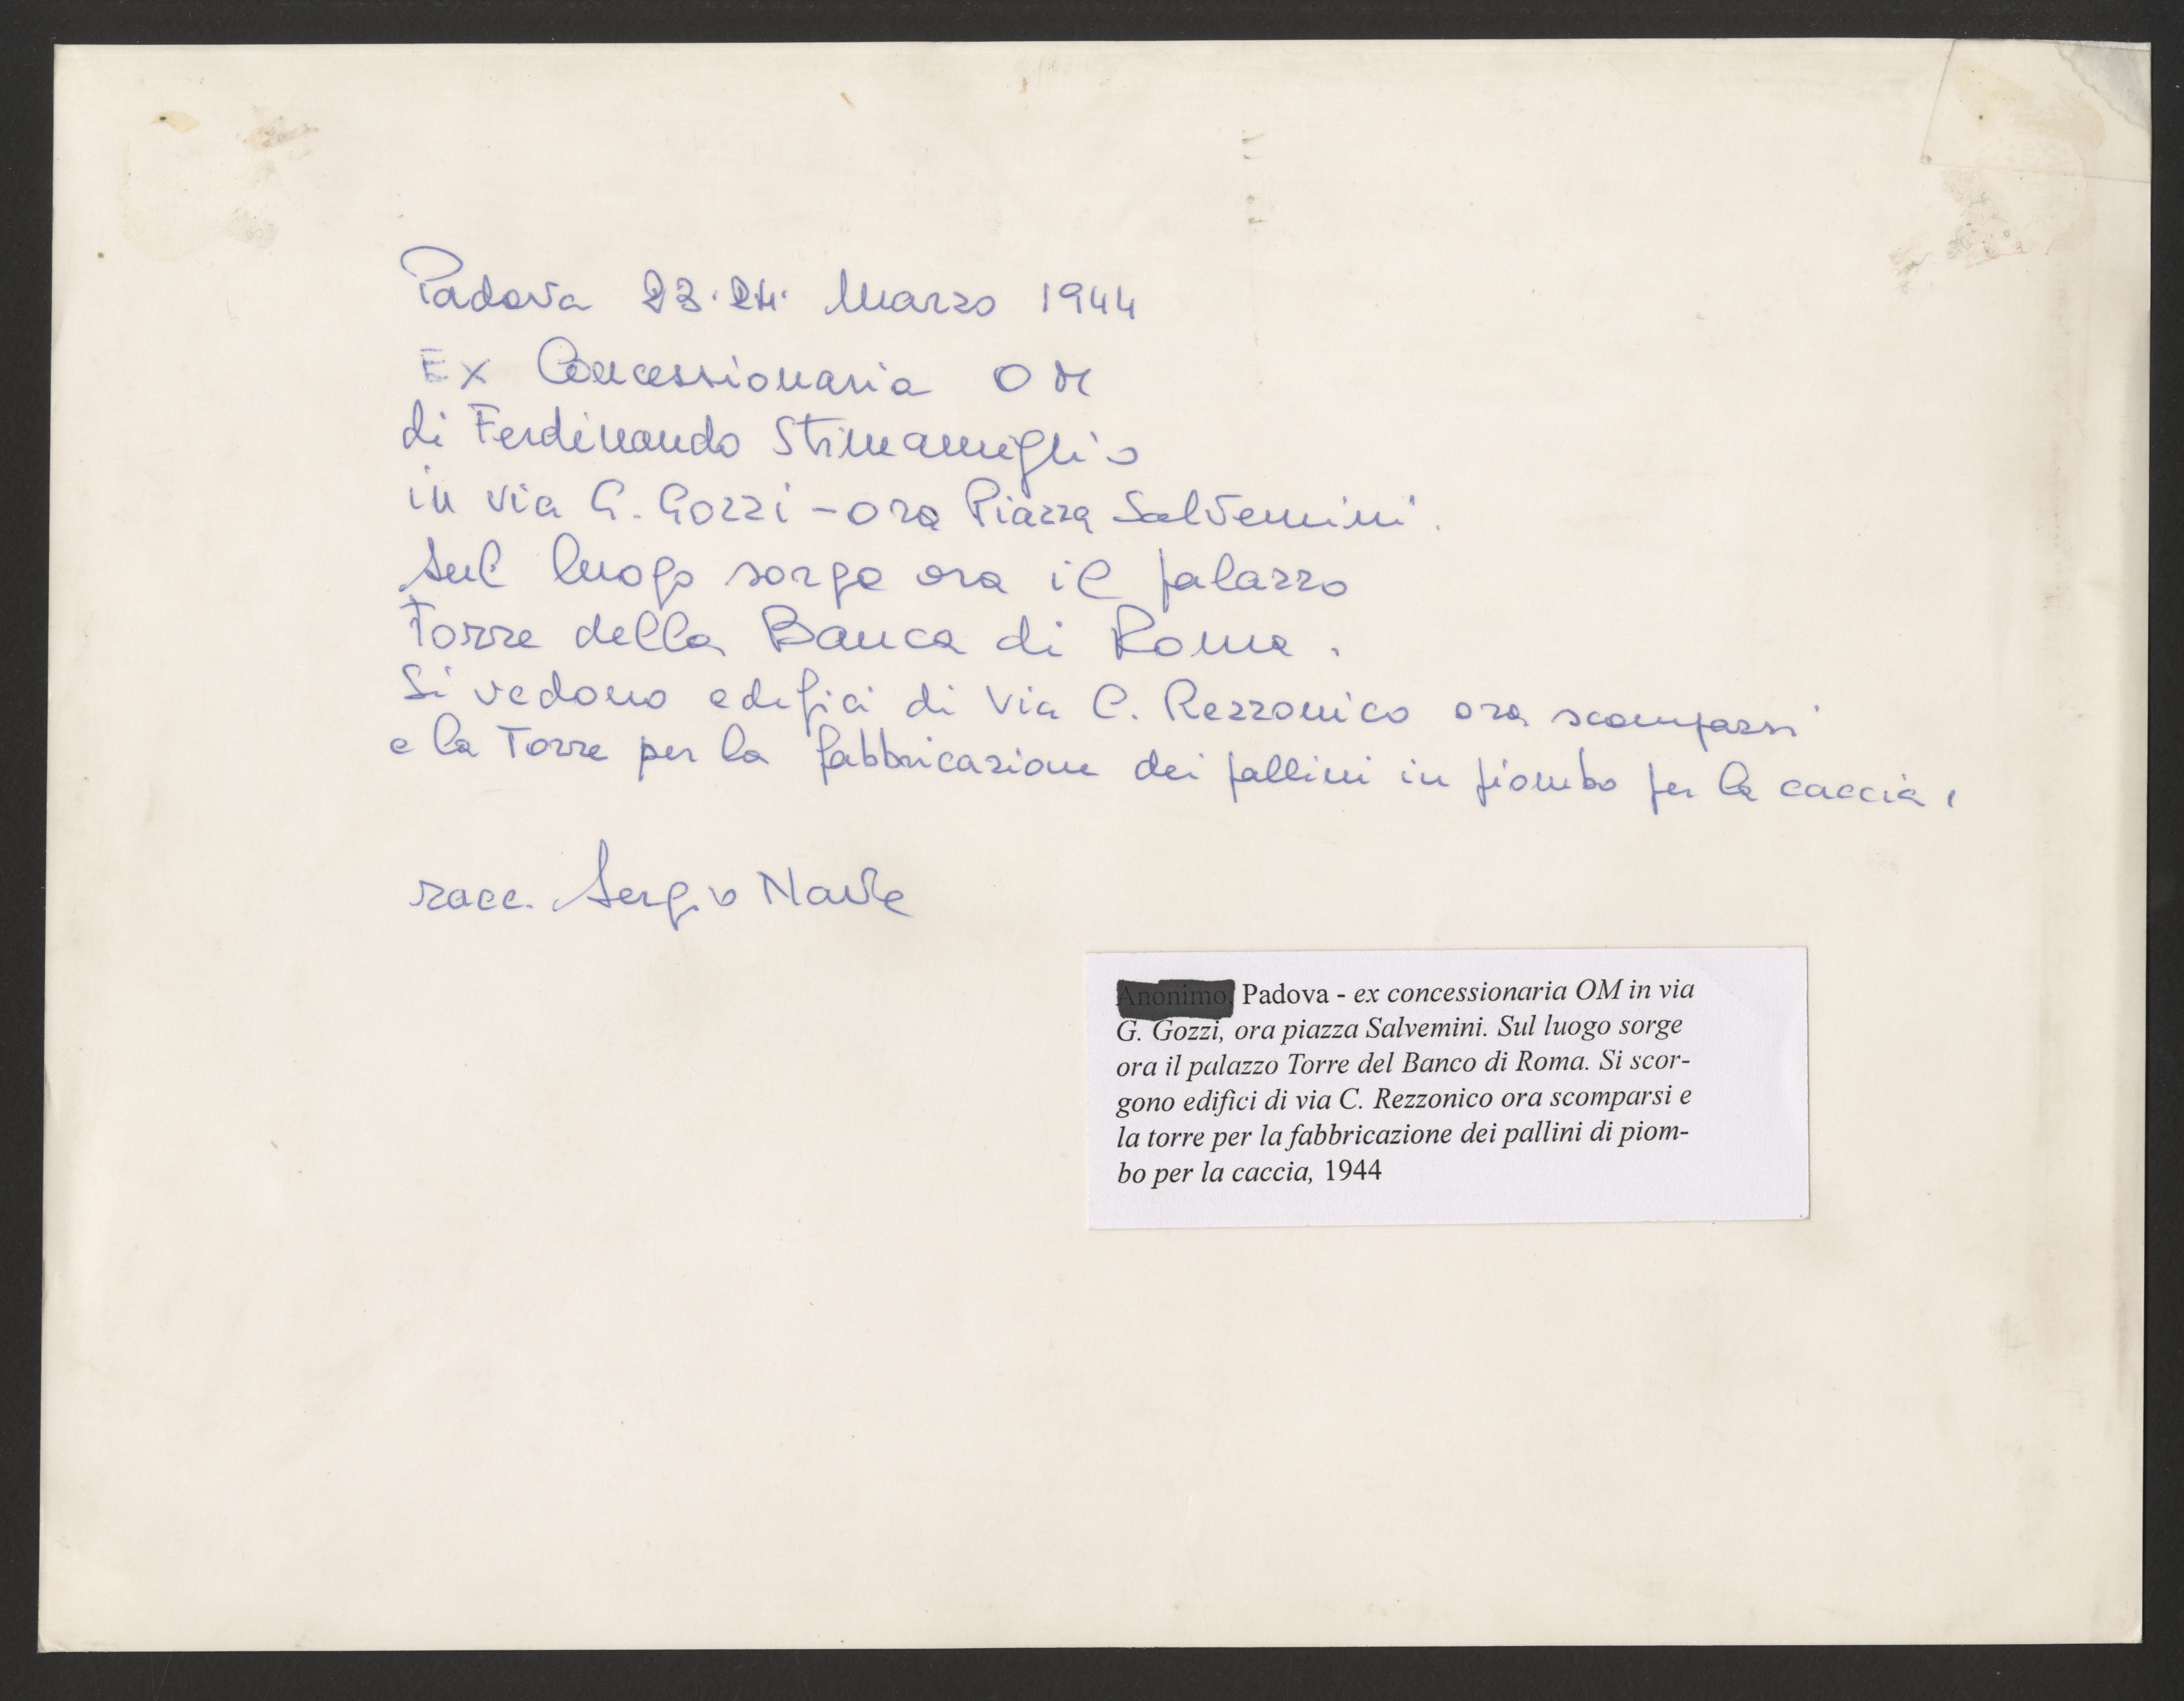 Padova 23.24. Marzo 1944
Ex Concessionaria OM
di Ferdinando Stimamiglio
in via G. Gozzi - ora Piazza Salvemini.
Sul luogo sorge ora il palazzo
Torre della Banca di Roma.
Si vedono edifici di Via C. Rezzonico ora scomparsi
e la Torre per la fabbricazione dei pallini in piombo per la caccia.
racc. Sergio Nave
Anonimo, Padova - ex concessionaria OM in via
G. Gozzi, ora piazza Salvemini. Sul luogo sorge
ora il palazzo Torre del Banco di Roma. Si scor-
gono edifici di via C. Rezzonico ora scomparsi e
la torre per la fabbricazione dei pallini di piom-
bo per la caccia, 1944